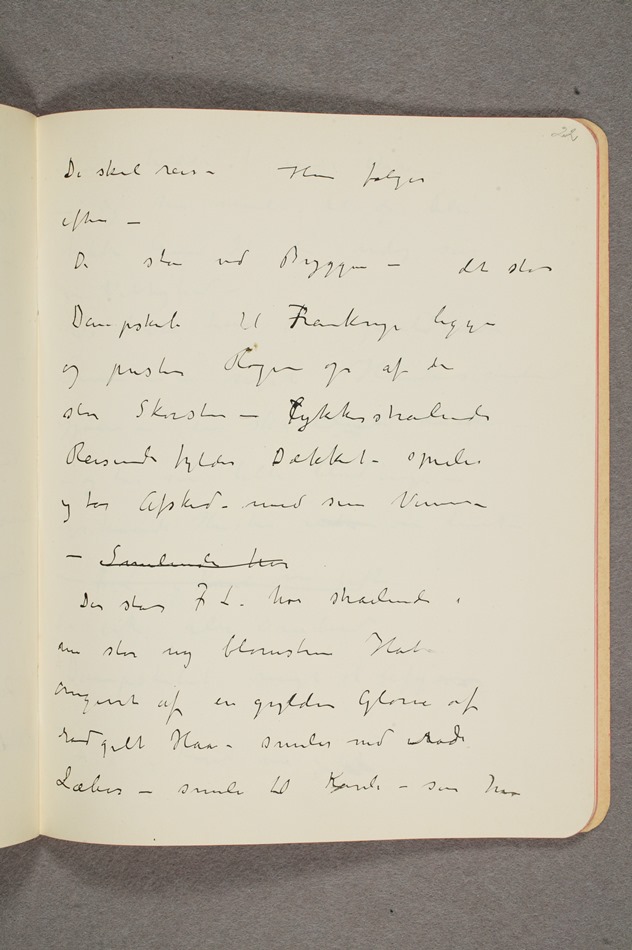 22
De skal reise Han følger
efter —
De står ved Bryggen — det store
Dampskib til Frankrige ligger
og puster Røgen op af de
store Skorstene — Lykkestralende
Reisende fylder Dækket — spiller
og tar Afsked — med sine Venner
— Smilende har
Der står F L. hos strålende i
en stor ny blomstrende Hat
omgivet af en gylden Glorie af
rødgult Haar — smiler med røde
Læber — smiler til — som han